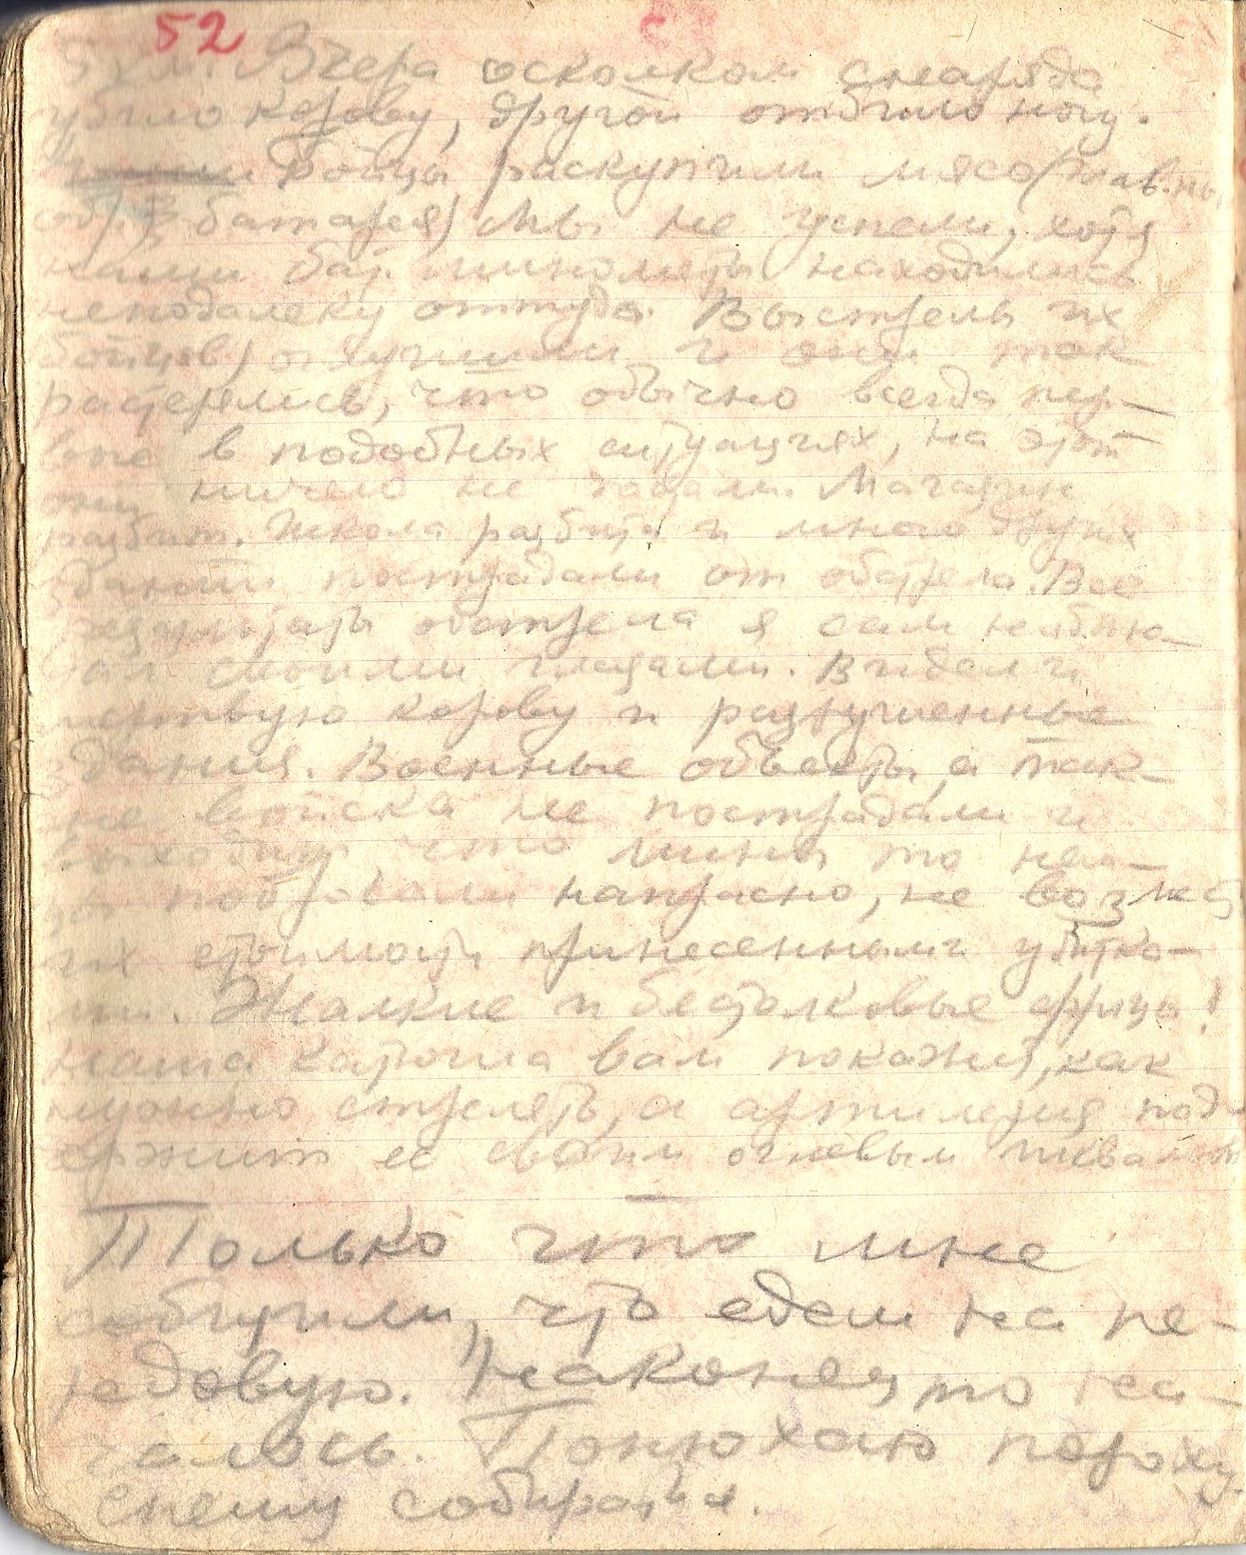 52
Вчера осколком снаряда
убило корову, другой отбило ногу.
Бойцы раскупили мясо
батарея) Мы не успели, хотя
наши бат. минометы находились
неподалеку оттуда. Выстрелы их
бойцов) оглушили и они так
растерялись, что обычно всегда пер-
вые в подобных ситуациях, на этот
они ничего не дадали. Магазин
разбит. Школа разбита и много других
зданий пострадали от обстрела. Все
результаты обстрела я сам наблю-
дал своими глазами. Видел и
мертвую корову и разрушенные
здания. Военные объекты, а так-
же войска не пострадали и
выходит что мины то нем-
цы побросали напрасно, не возмест
их стоимости принесенными убытка-
ми. Жалкие и бестолковые фрицы!
Наша катюша вам покажет, как
нужно стрелять, а артилерия под-
держит ее своим огневым шквалом
Только что мне
сообщили, что едем на пе-
редовую. Наконец то на-
чалось. Понюхаю пороху.
Спешу собираться.